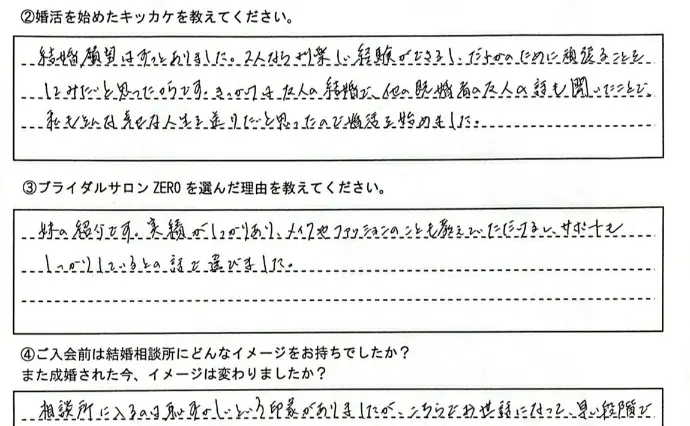 ②婚活を始めたキッカケを教えてください。
結婚願望はずっとありました。2人なら楽しい経験ができるし、だれかのために頑張ることを
してみたいと思ったからです。きっかけは友人の結婚で、他の既婚者の友人の話も聞いたことで、
私もそんな幸せな人生を送りたいと思ったので婚活を始めました。
③ブライダルサロンZEROを選んだ理由を教えてください。
妹の紹介です。実績がしっかりあり、メイクやファッションのことも教えていただけるし、サポートも
しっかりしているとの話で選びました。
④ご入会前は結婚相談所にどんなイメージをお持ちでしたか？
また成婚された今、イメージは変わりましたか？
相談所に入るのは恥ずかしいという印象がありましたが、こちらでお世話になって、早い段階で